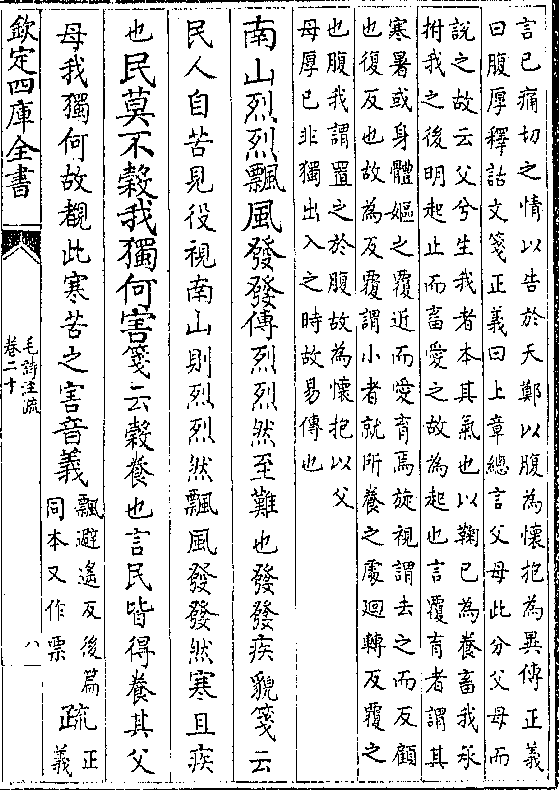 言已痛切之情以告於天鄭以腹為懷抱為異傳正義
曰腹厚釋詁文箋正義曰上章總言父母此分父母而
說之故云父兮生我者本其氣也以鞠已為養畜我承
拊我之後明起止而畜愛之故為起也言覆育者謂其
寒暑或身體嫗之覆近而愛育焉旋視謂去之而反顧
也復反也故為反覆謂小者就所養之處迴轉反覆之
也腹我謂置之於腹故為懷抱以父
母厚已非獨出入之時故易傳也
南山烈烈飄風發發傳烈烈然至難也發發疾貌箋云
民人自苦見役視南山則烈烈然飄風發發然寒且疾
也民莫不穀我獨何害箋云穀養也言民皆得養其父
母我獨何故覩此寒苦之害音義
飄避遙反後篇
同本又作票
疏
正
義
欽定四庫全書
毛詩注疏
卷二十
八